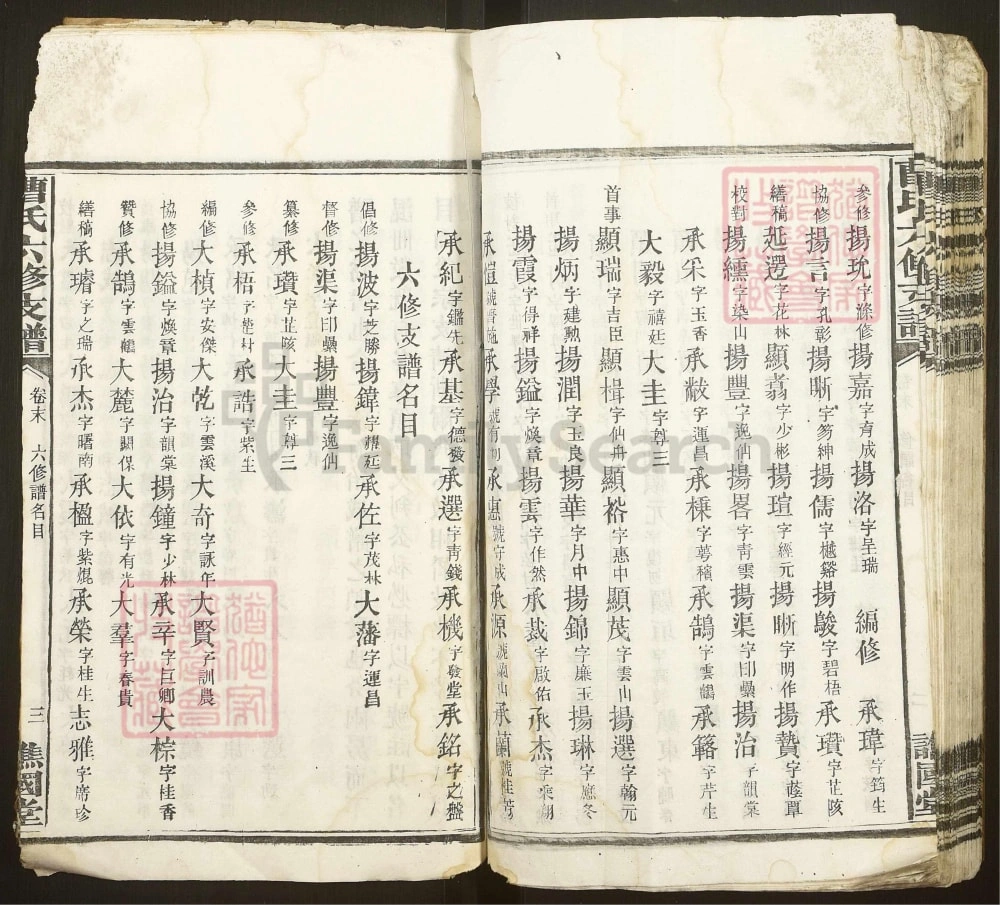 參修 揚玧字滌修 揚嘉字育成 揚洛字呈瑞 編修 承瑋字筠生
協修 揚言字孔彰 揚晰字笏紳 揚儒字樾谿 揚駿字碧梧 承瓚字芷陔
繕稿 延遝字花林 顯翥字少彬 揚瑄字經元 揚晰字明作 揚贊字蓬覃
校對 揚纁字染山 揚豐字逸仙 揚畧字青雲 揚渠字印櫐 揚治字韻棠
承采字玉香 承敝字運昌 承楝字萼穡 承鵠字雲鶴 承簵字芹生
大毅字禧廷 大圭字尊三
首事 顯瑞字吉臣 顯楫字仙舟 顯裕字惠中 顯茂字雲山 揚選字翰元
揚炳字建勲 揚潤字玉良 揚華字月中 揚錦字廉玉 揚琳字應冬
揚霞字得祥 揚鎰字煥章 揚雲字作然 承裁字啟佑 承杰字乘翔
承愷號 承學號有 承惠號守成 承源號蘭山 承蘭號桂芳
承紀字鑑先 承基字德發 承選字青錢 承機字發堂 承銘字之盤
六修支譜名目
倡修 揚波字芝勝 揚鍏字耀廷 承佐字茂林 大藩字運昌
督修 揚渠字印櫐 揚豐字逸仙
纂修 承瓚字芷陔 大圭字尊三
參修 承梧字楚材 承誥字紫生
編修 大楨字安傑 大乾字雲溪 大奇字詠年 大賢字訓農
協修 揚鎰字煥章 揚治字韻棠 揚鐘字少林 承辛字巨卿 大棕字桂香
贊修 承鵠字雲鶴 大麓字閞保 大依字有光 大羣字春貴
繕稿 承璿字之瑞 承杰字曙南 承楹字紫焜 承榮字桂生 志雅字席珍
曹氏六修支譜
卷末 六修譜名目
三
譙國堂
FamilySearch